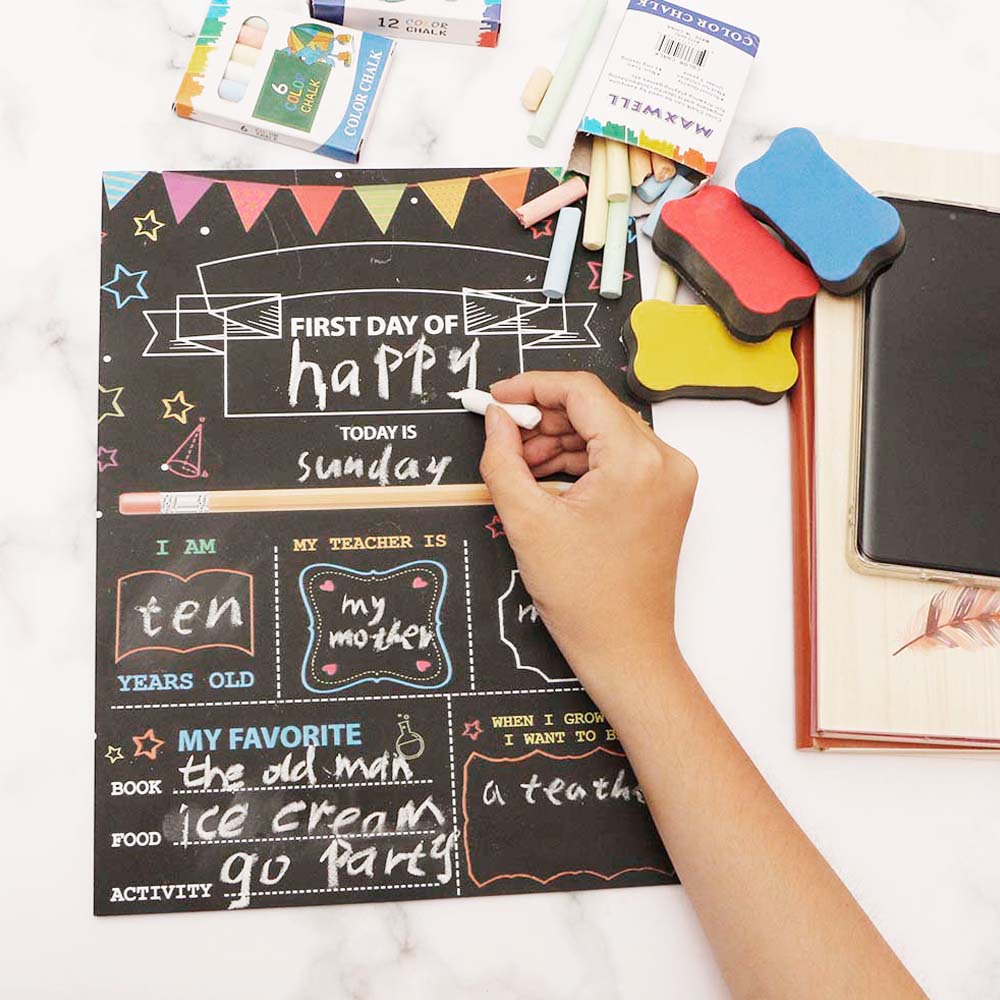 12 COLOR
CHALK
6
COLOR
CHALK
COLOR CHALK
6 COLOR CHALK
COLOR CHALK
MAXWELL
FIRST DAY OF
happy
TODAY IS
sunday
I AM
ten
YEARS OLD
MY TEACHER IS
my
mother
MY FAVORITE
BOOK the old man
FOOD ice cream
ACTIVITY go party
WHEN I GROW
I WANT TO
a